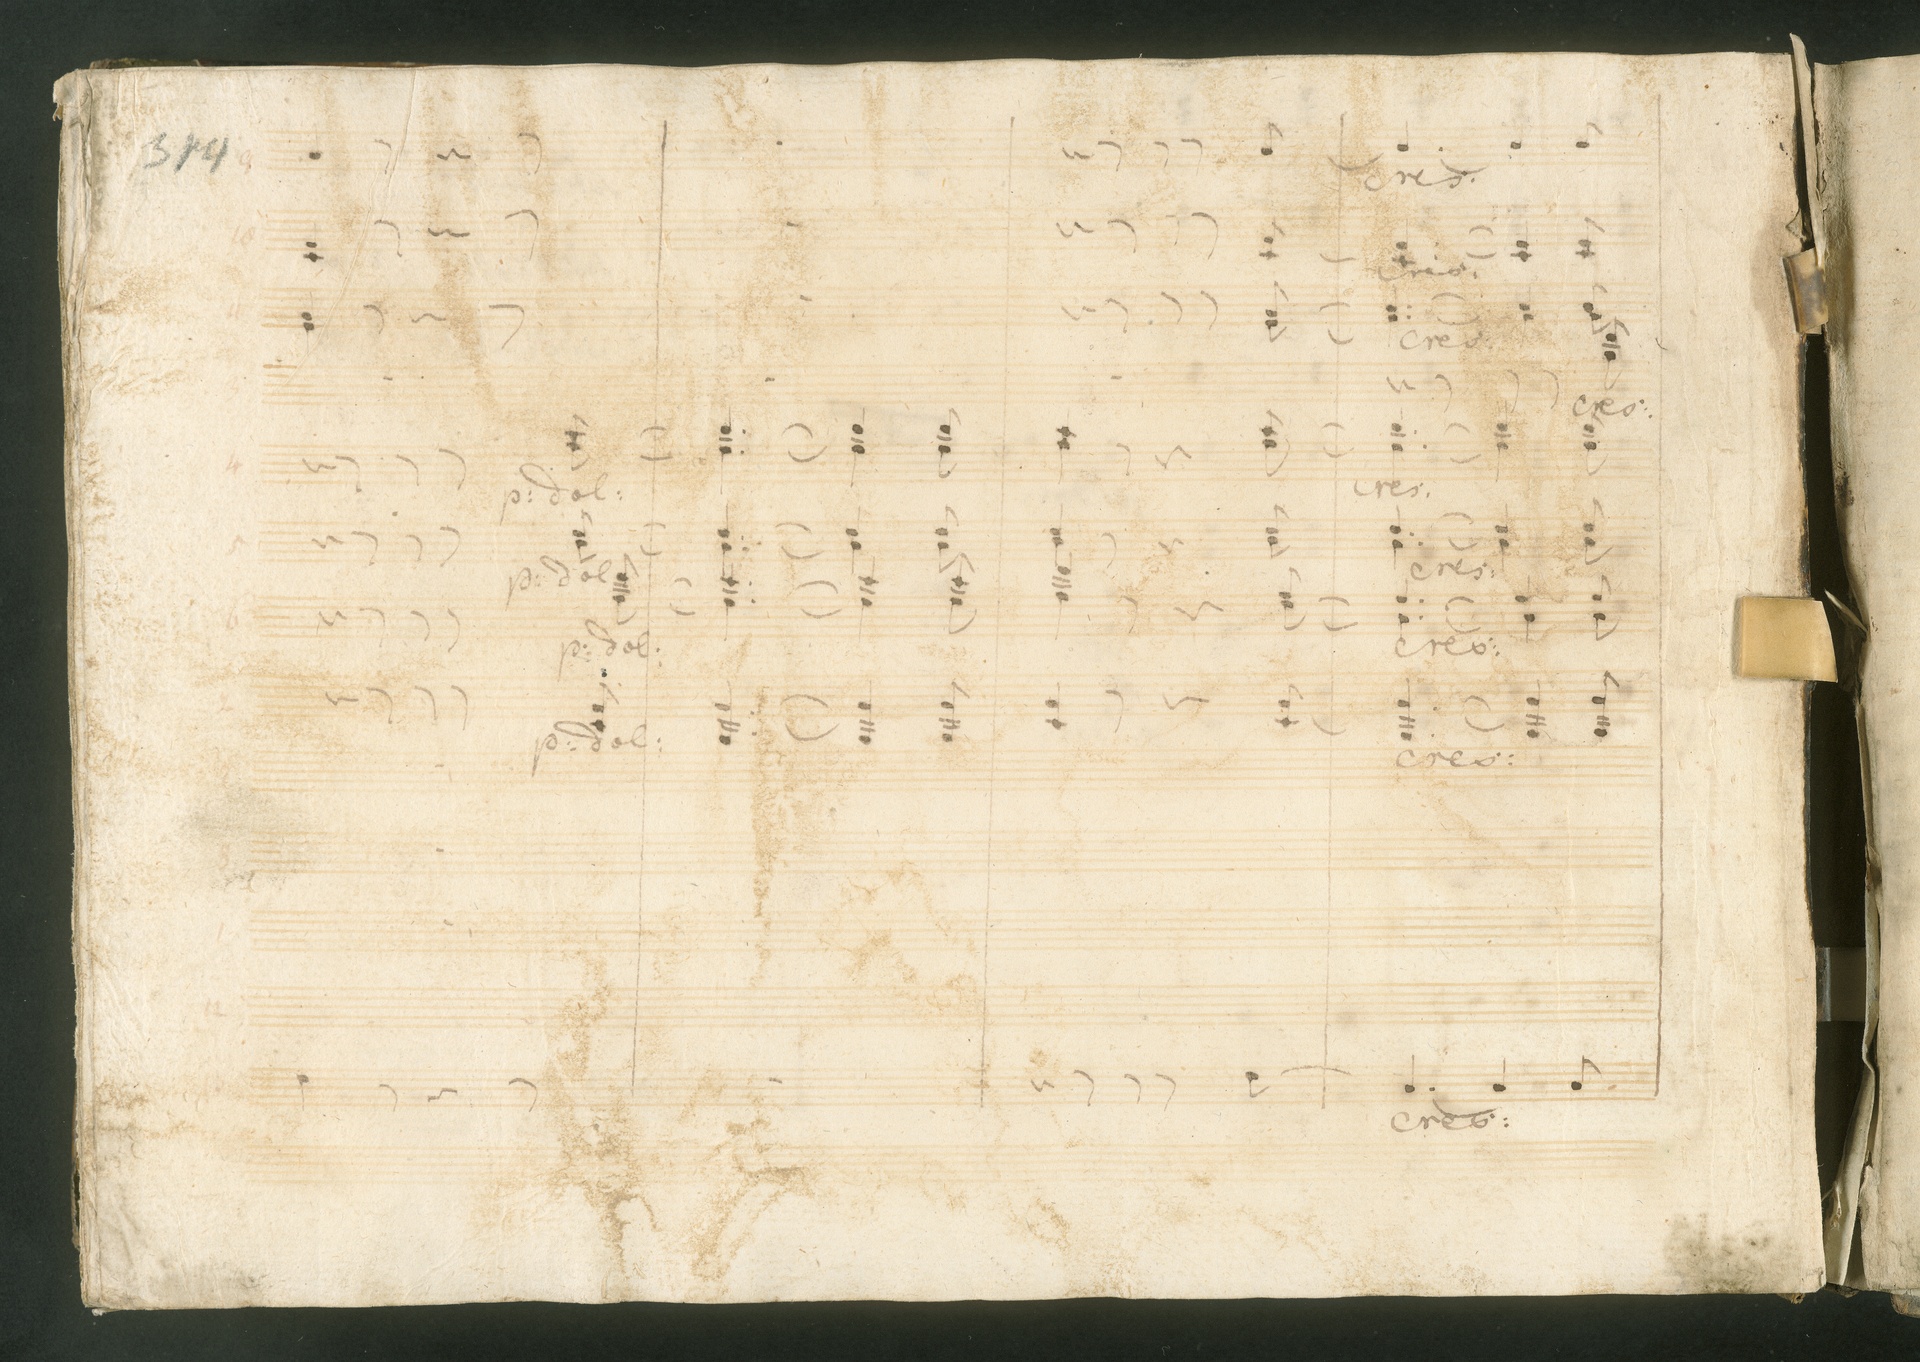 314
cres:
cres:
cres:
cres:
p: dol:
cres.
p: dol
cres:
p: dol:
cres:
p: dol:
cres:
cres: